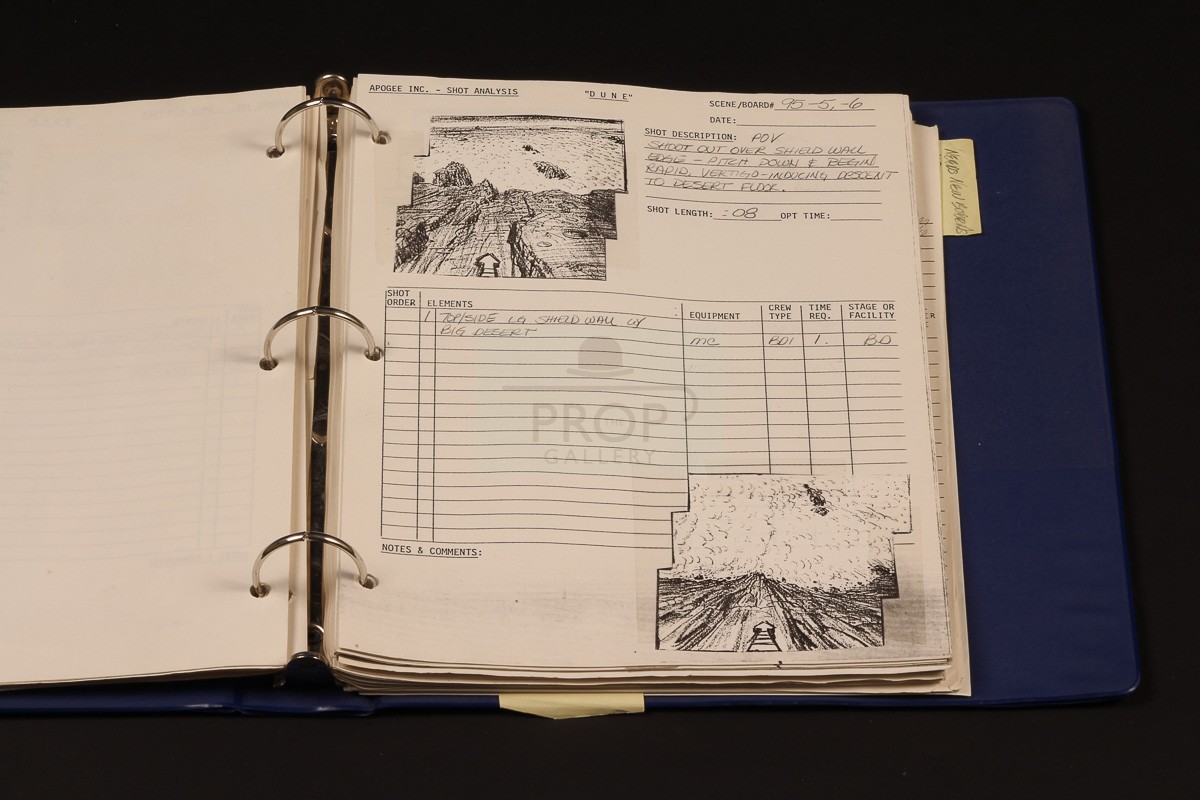 APOGEE INC. - SHOT ANALYSIS
"D U N E"
SCENE/BOARD# 95-5, -6
DATE:
SHOT DESCRIPTION: POV
SHOOT OUT OVER SHIELD WALL
EDGE - PITCH DOWN & BEGIN
RAPID, VERTIGO-INDUCING DESCENT
TO DESERT FLOOR.
SHOT LENGTH: :08 OPT TIME:
NEED NEW BOARDS
SHOT ORDER ELEMENTS EQUIPMENT CREW TYPE TIME REQ. STAGE OR FACILITY
1 TOP/SIDE LG SHIELD WALL W/
BIG DESERT MC BD1 1. BD
THE
PROP
GALLERY
NOTES & COMMENTS: